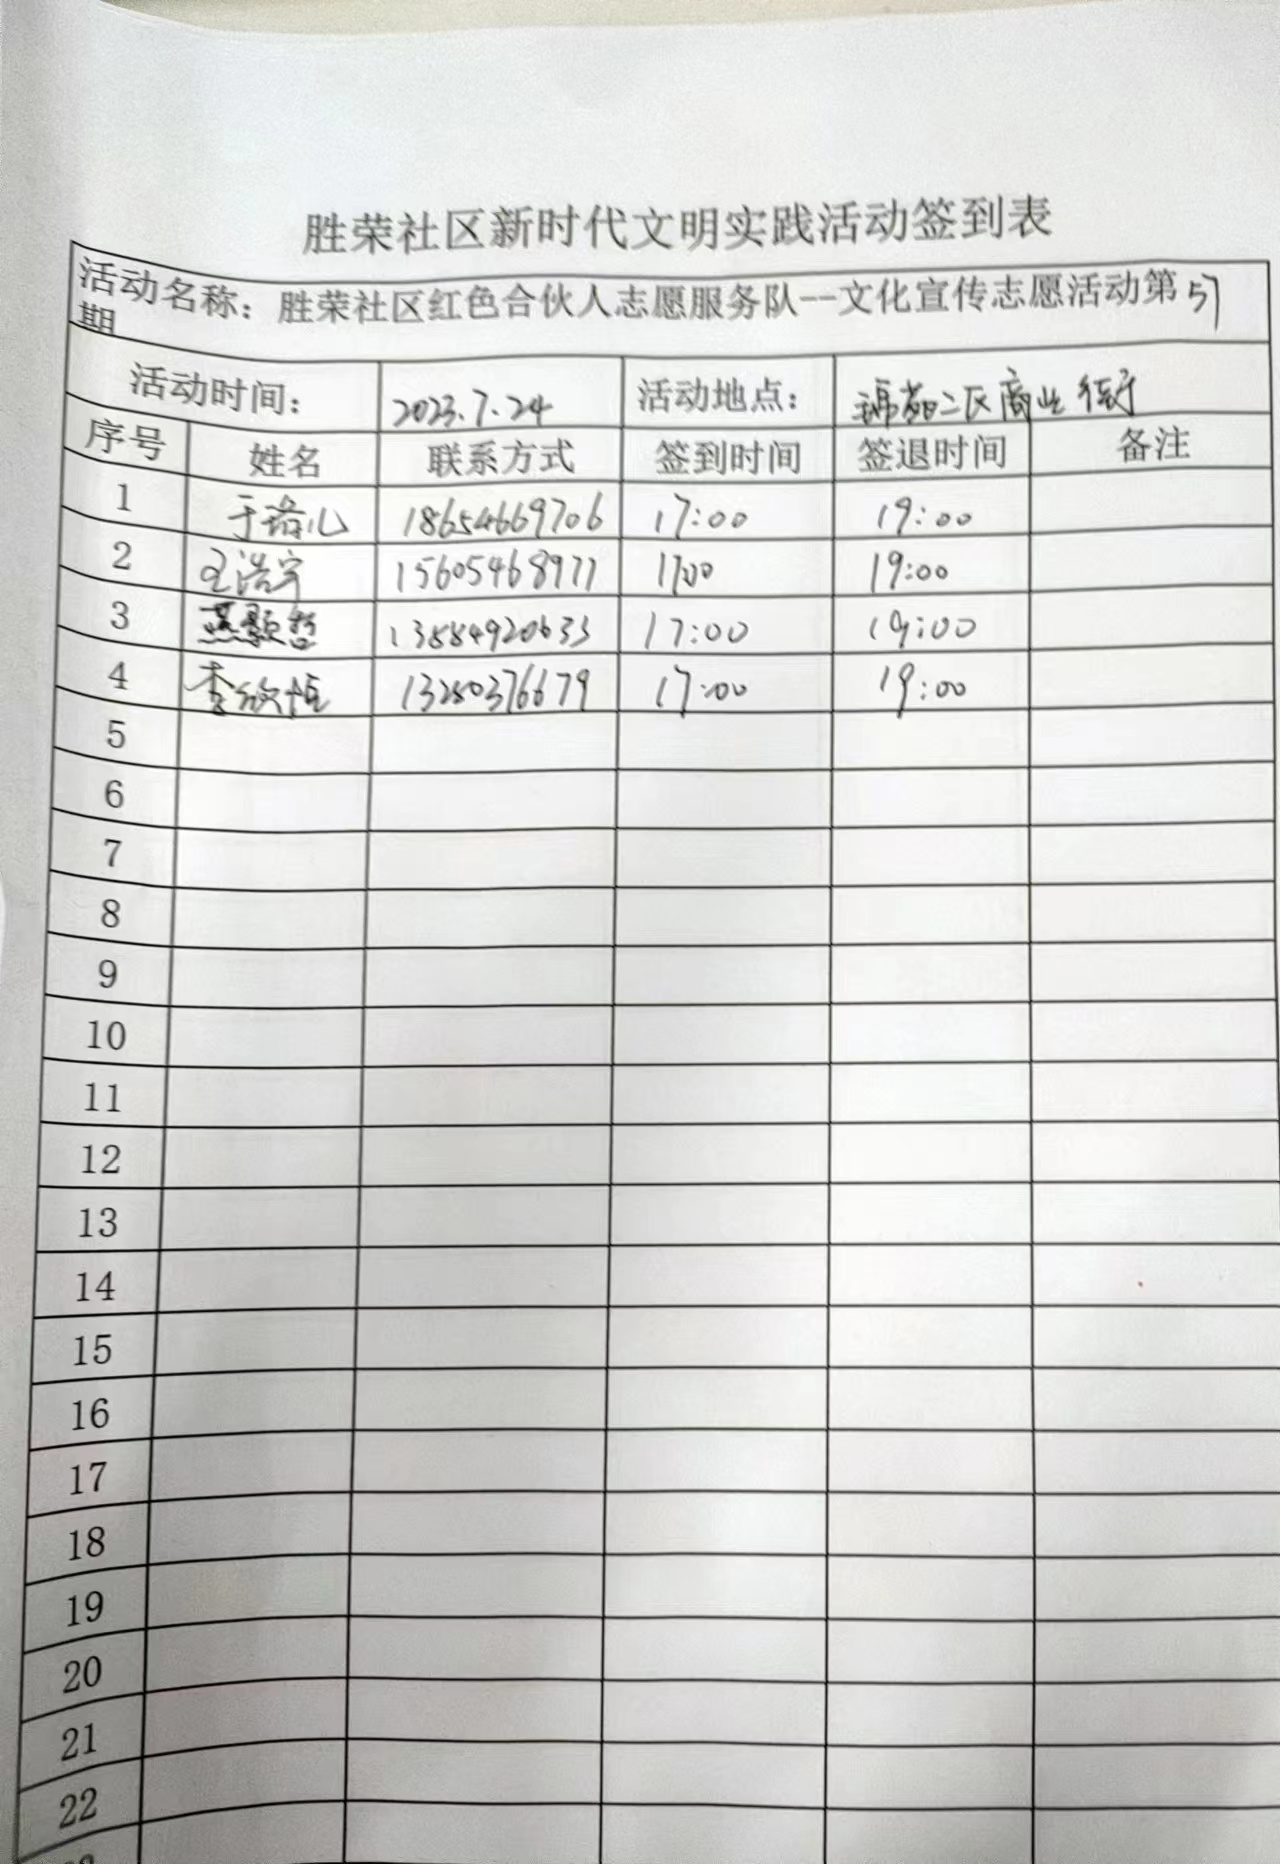 胜荣社区新时代文明实践活动签到表
活动名称：胜荣社区红色合伙人志愿服务队--文化宣传志愿活动第57
期
活动时间： 2023.7.24 活动地点： 锦苑二区商业街
序号 姓名 联系方式 签到时间 签退时间 备注
1 18654669706 17:00 19:00
2 王浩宇 15605468977 17:00 19:00
3 燕颢哲 13884920633 17:00 19:00
4 李欣恒 13280376679 17:00 19:00
5
6
7
8
9
10
11
12
13
14
15
16
17
18
19
20
21
22